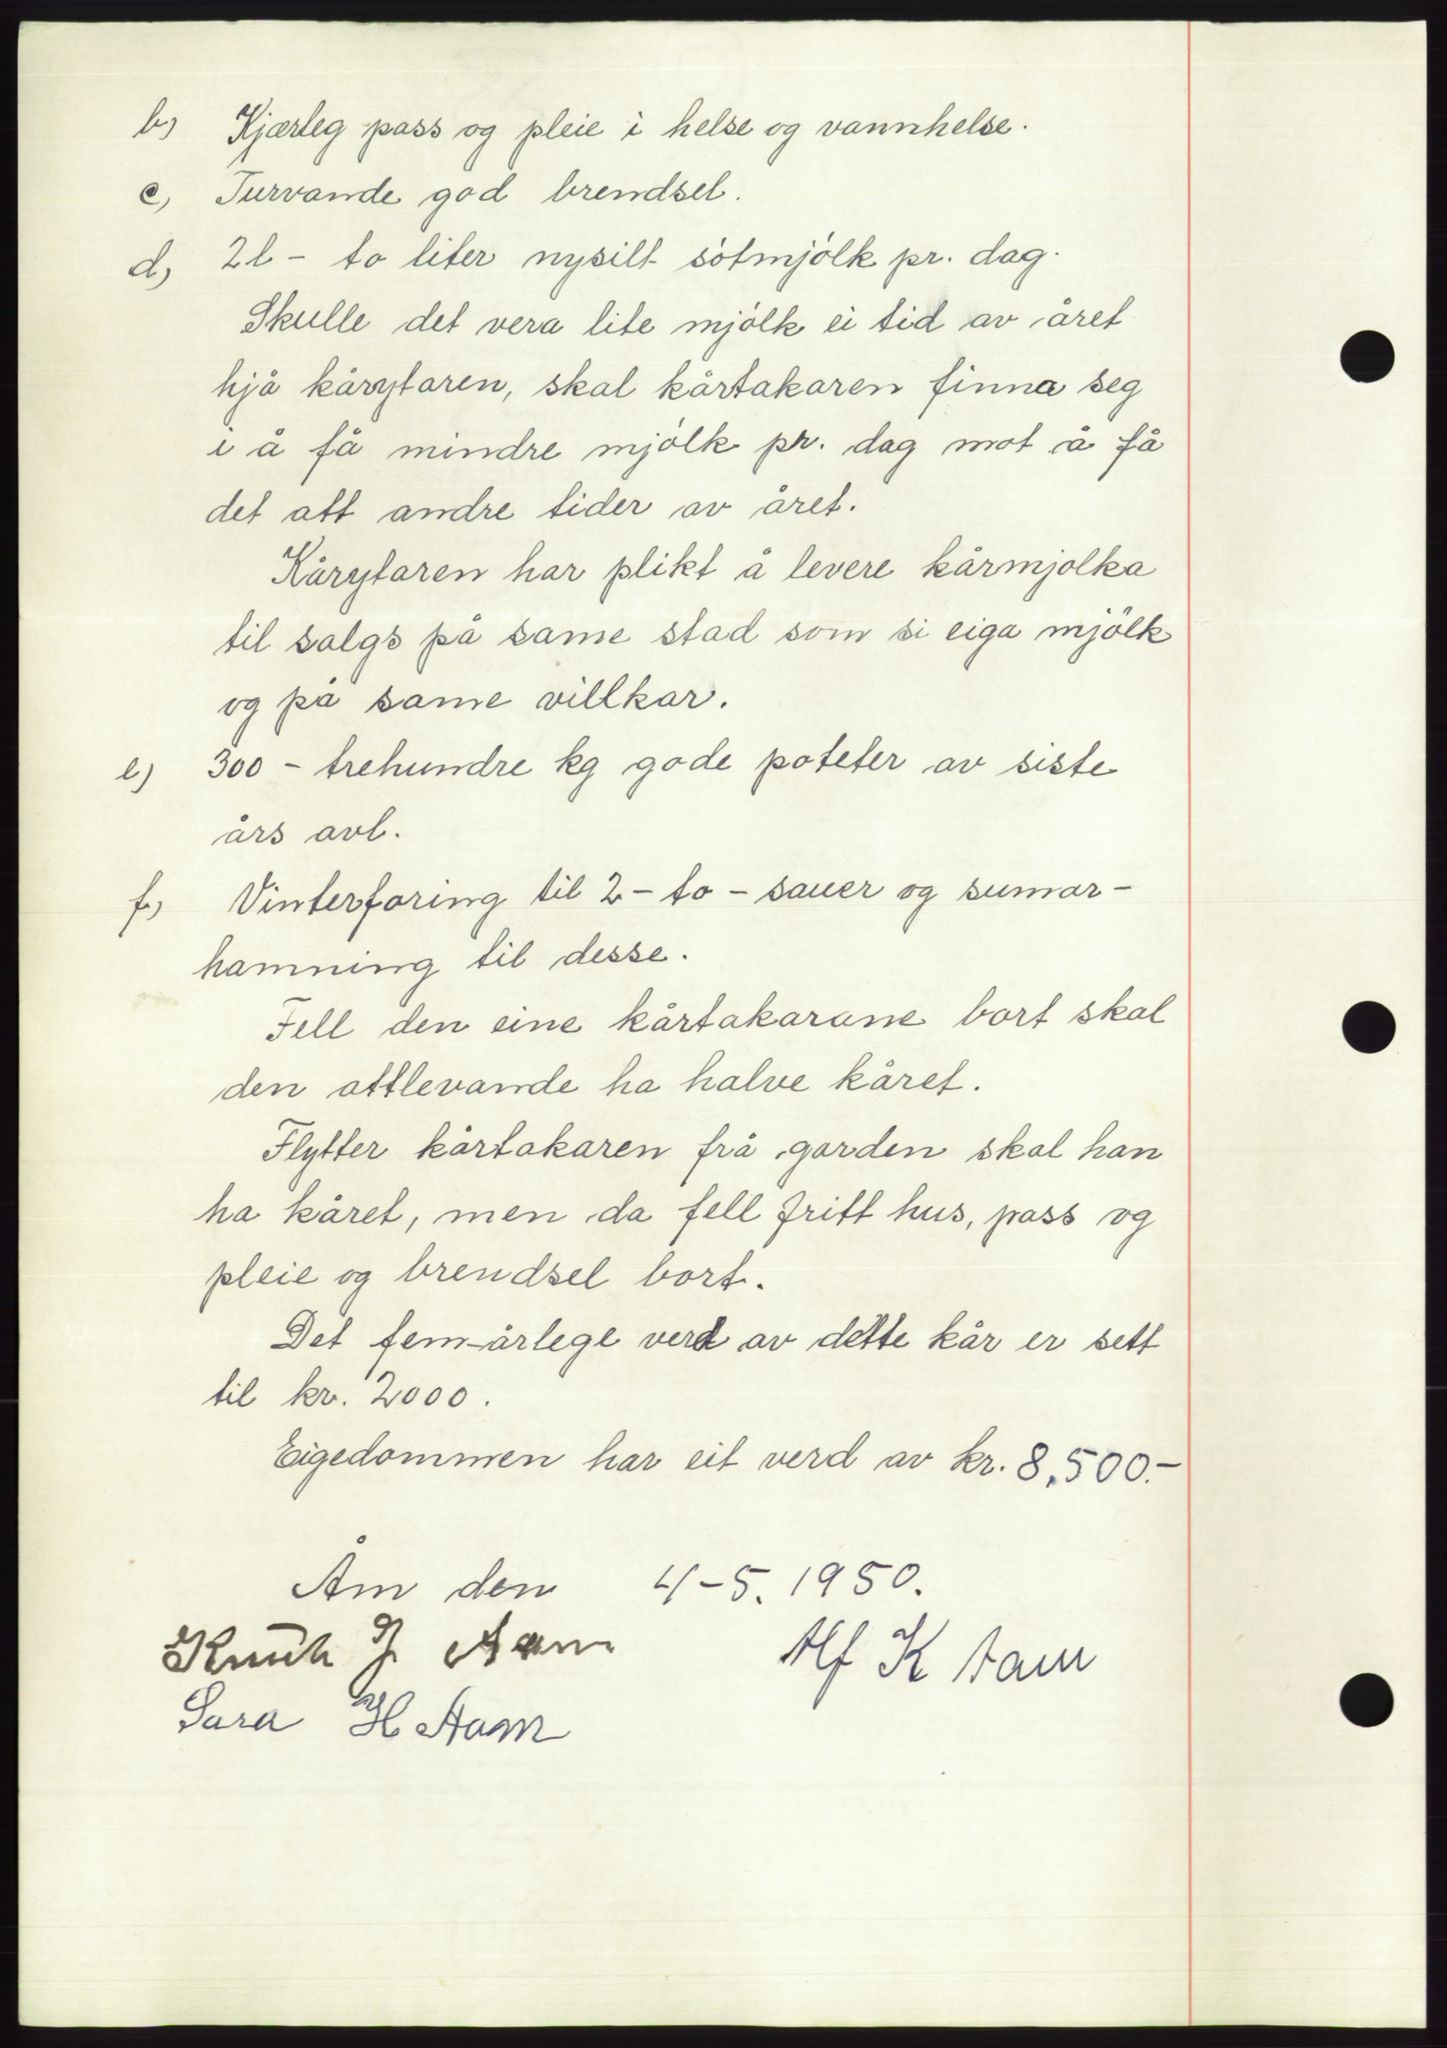 b) Kjærleg pass og pleie i helse og vannhelse.
c) Turvande god brendsel.
d) 2 l - to liter nysilt sòtmjòlk pr. dag.
Skulle det vera lite mjòlk ei tid av året
hjå kårytaren, skal kårtakaren finna seg
i å få mindre mjòlk pr. dag mot å få
det att andre tider av året.
Kårytaren har plikt å levere kårmjolka
til salgs på same stad som si eiga mjölk
og på same villkar.
e) 300 - trehundre kg gode poteter av siste
års avl.
f) Vinterforing til 2 - to - sauer og sumar-
hamning til desse.
Fell den eine kårtakarane bort skal
den attlevande ha halve kåret.
Flytter kårtakaren frå garden skal han
ha kåret, men da fell fritt hus, pass og
pleie og brendsel bort.
Det fem-årlege verd av dette kår er sett
til kr. 2000.
Eigedommen har eit verd av kr. 8,500.-
Åm den 4-5. 1950.
Knut J Aam Alf K Aam
Sara H Aam